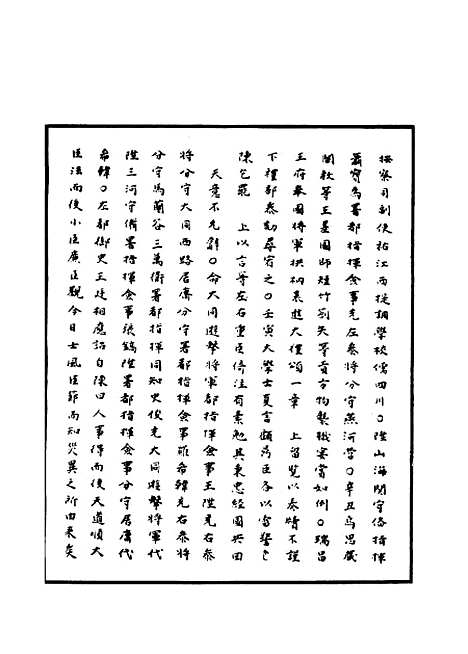 按察司副使祐江西提調學校儒四川○陞山海關守俻指揮
蕭寶為署都指揮僉事充左參將分守燕河營○辛丑烏思蔵
闡教等王星國師短竹劄失等貢方物襲職宴賞如例○瑞昌
王府奉國將軍拱枘奏進大禮頌一章　上留覽以奏情不謹
下禮部參勘尋宥之○壬寅大學士夏言顧鼎臣各以雷警乞
陳乞罷　上以言等左右重臣倚注有素勉其秉忠經國共回
天意不允辭○命大同遊擊將軍都指揮僉事王陞充右參
將分守大同西路居庸分守署都指揮僉事羅希韓充右參將
分守馬蘭谷三萬衛署都指揮同知史俊充大同遊擊將軍代
陞三河守備署指揮僉事張鎬陞署都指揮僉事分守居庸代
希韓○左都御史王廷相應詔自陳曰人事得而後天道順大
臣法而後小臣廉臣觀今日士風臣節而知災異之所由來矣